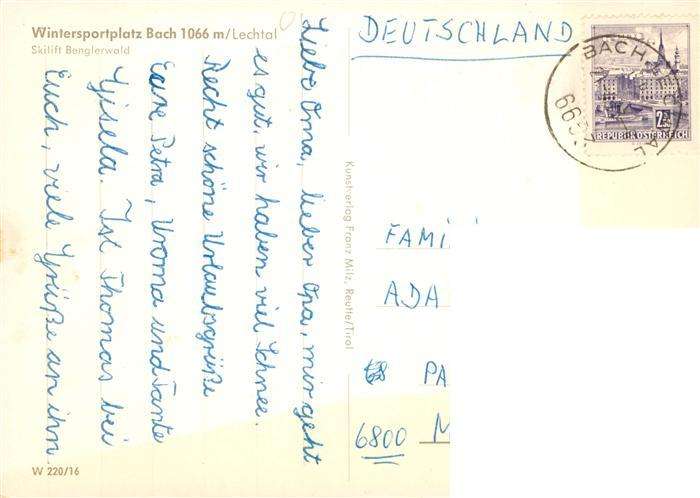 Wintersportplatz Bach 1066 m/Lechtal
Skilift Benglerwald
Liebe Oma, lieber Opa, mir geht
es gut, wir haben viel Schnee.
Recht schöne Urlaubsgrüße
Eure Petra, Uroma und Tante
Gisela. Ist Thomas bei
Euch, viele Grüße an ihn.
W 220/16
Kunstverlag Franz Milz, Reutte/Tirol
DEUTSCHLAND
REPUBLIK ÖSTERREICH
FAMI
ADA
PA
6800 M